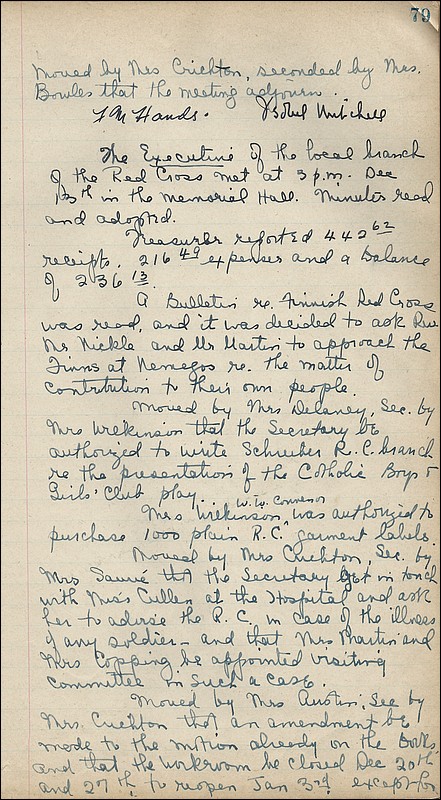 79
moved by Mrs Crichton, seconded by Mrs.
Bowles that the meeting adjourn.
L M Hands. Isobel Mitchell
The Executive of the local branch
of the Red Cross met at 3 p.m. Dec
13th in the memorial Hall. Minutes read
and adopted.
Treasurer reported 442 62
receipts, 216 49 expenses and a balance
of 236 13.
A Bulletin re. Finnish Red Cross
was read, and it was decided to ask
Mr Nickle and Mr Martin to approach the
Finns at Nemegos re. the matter of
contribution to their own people.
moved by Mrs Delaney, Sec. by
Mrs Wilkinson that the Secretary be
authorized to write Schreiber R.C. branch
re the presentation of the Catholic Boys &
Girls' Club play.
W.W. Convenor
Mrs Wilkinson, was authorized to
purchase 1000 plain R.C. garment labels.
Moved by Mrs Crichton, Sec. by
Mrs Sauvé that the Secretary get in touch
with Miss Cullen at the Hospital and ask
her to advise the R.C. in case of the illness
of any soldier - and that Mrs Martin and
Mrs Copping be appointed visiting
committee in such a case.
Moved by Mrs Austin, Sec by
Mrs. Crichton that an amendment be
made to the motion already on the Books,
and that the workroom be closed Dec 20th
and 27th, to reopen Jan 3rd except for